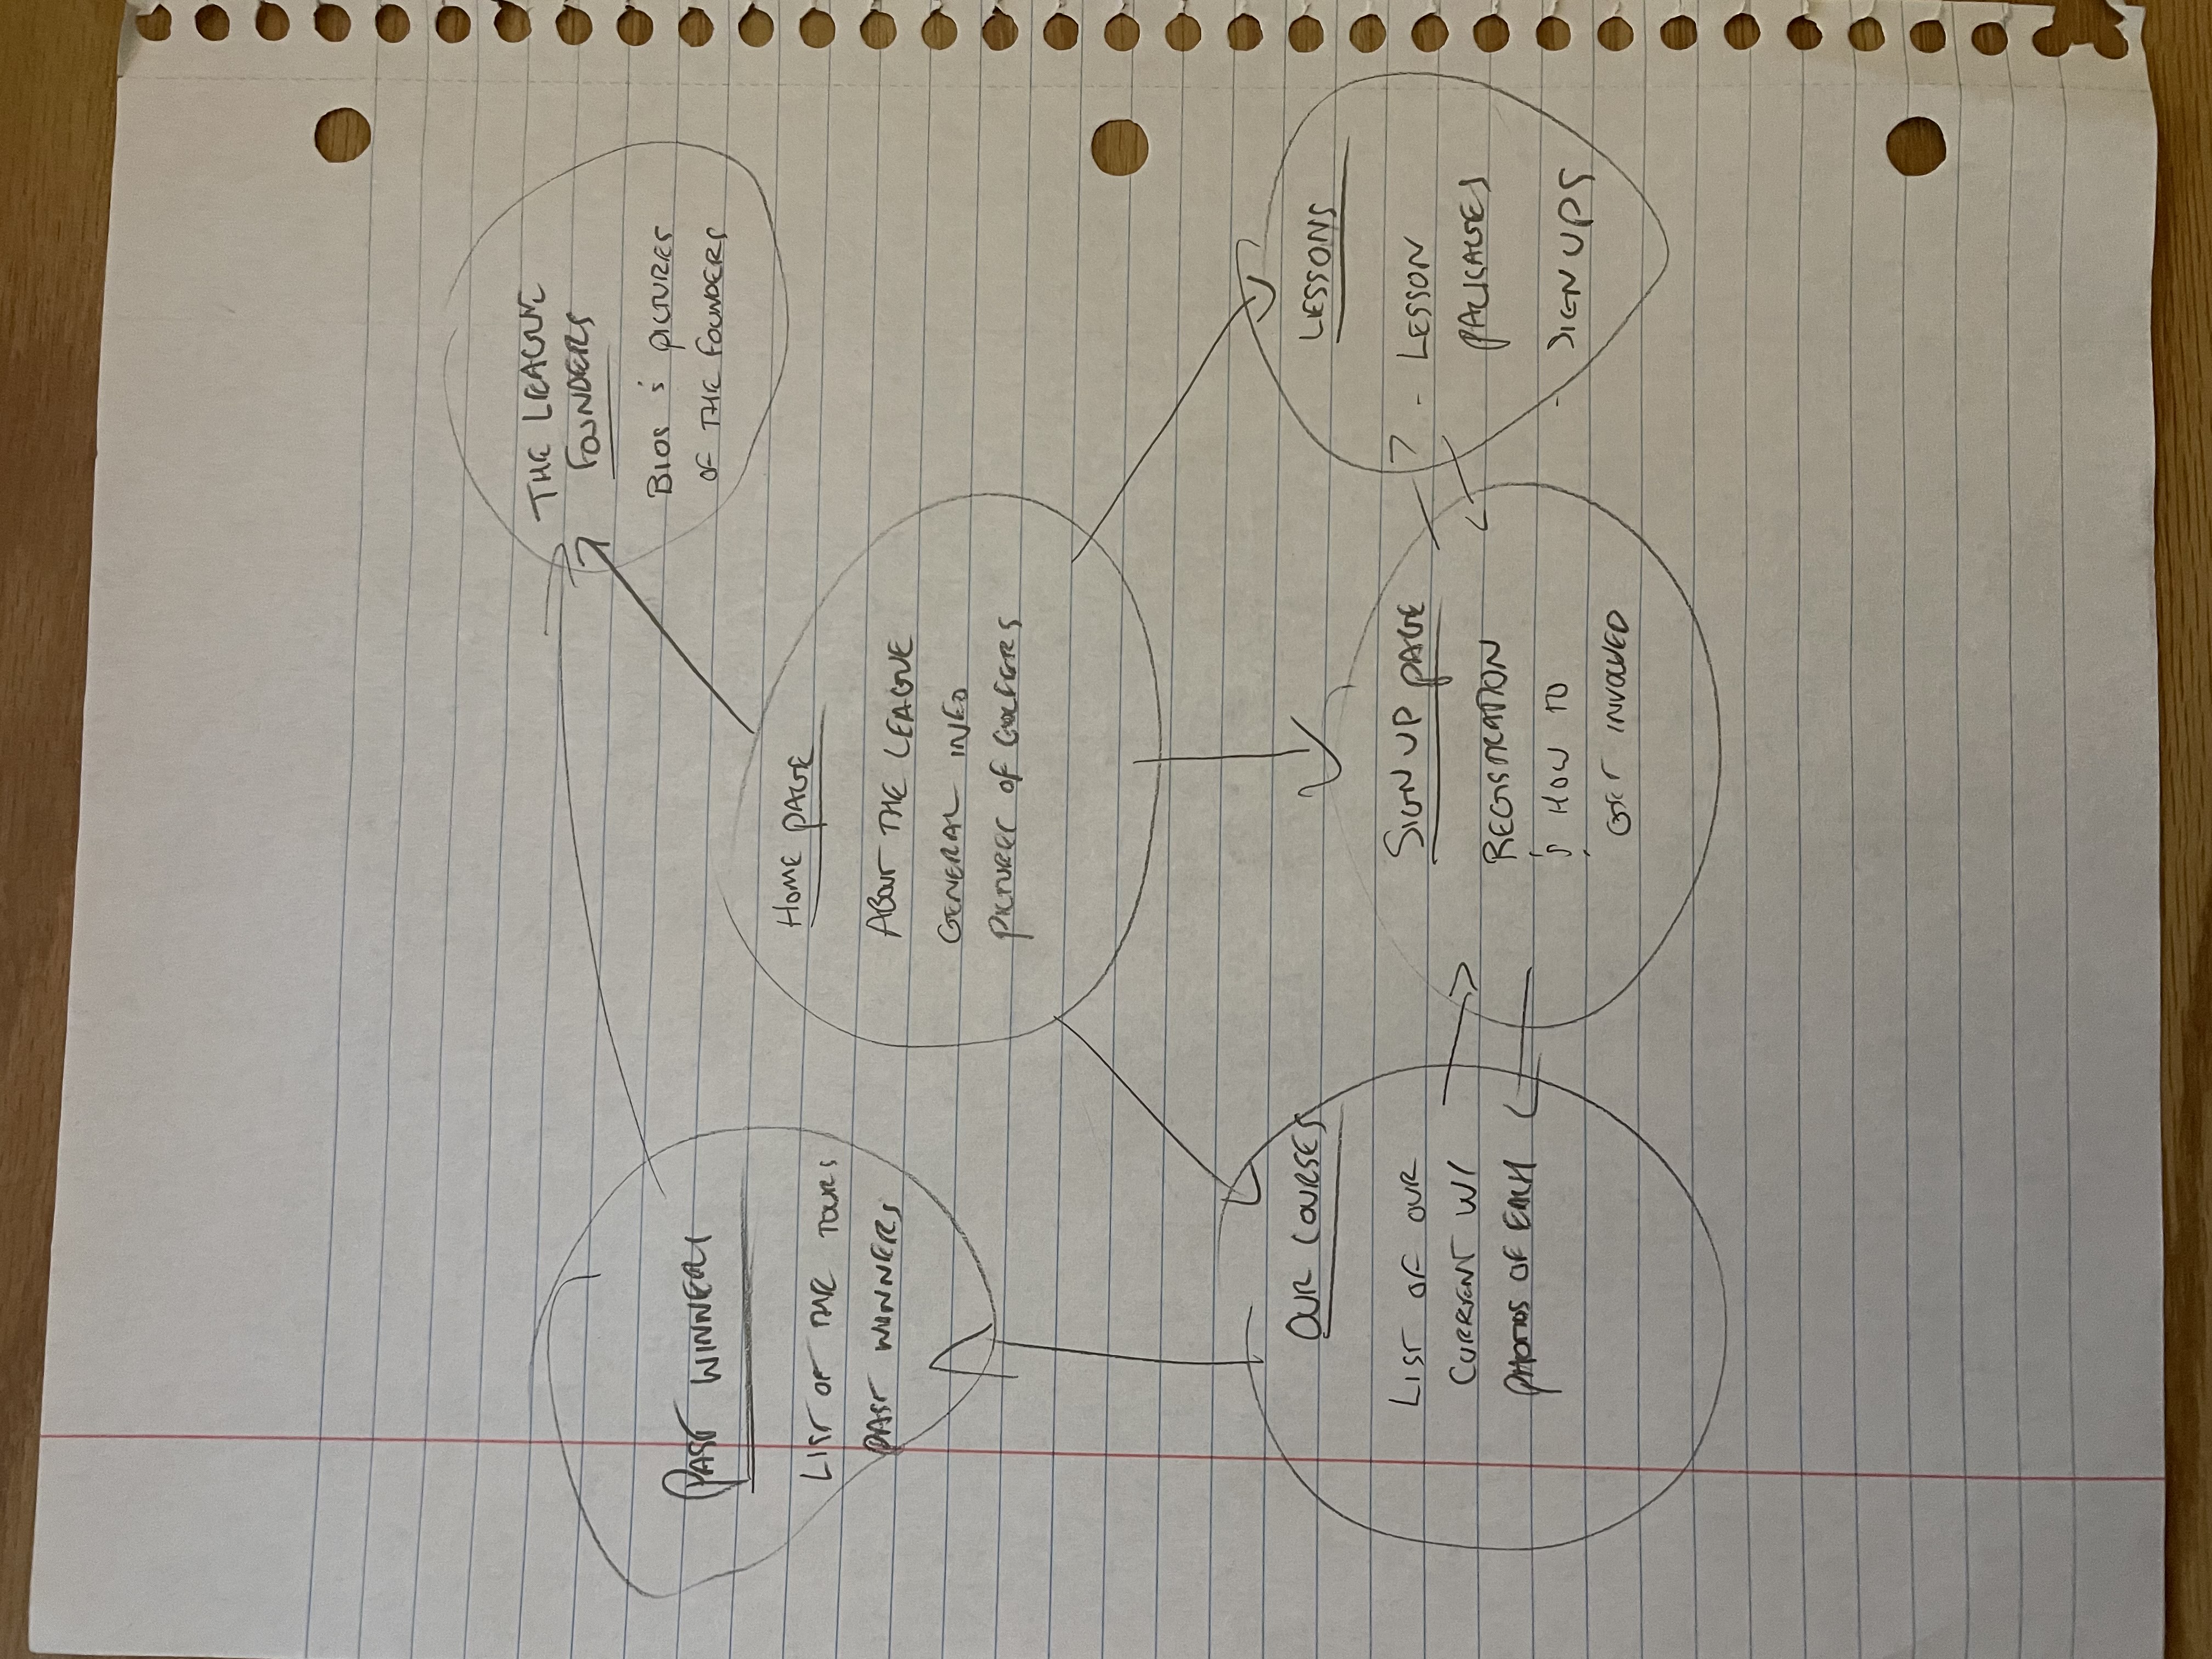 THE LEAGUE
FOUNDERS
BIOS & PICTURES
OF THE FOUNDERS
PAST WINNERS
LIST OF THE TOURS
PAST WINNERS
HOME PAGE
ABOUT THE LEAGUE
GENERAL INFO
PICTURES OF GOLFERS
OUR COURSES
LIST OF OUR
CURRENT W/
PHOTOS OF EACH
SIGN UP PAGE
REGISTRATION
& HOW TO
GET INVOLVED
LESSONS
- LESSON
PACKAGES
- SIGN UPS